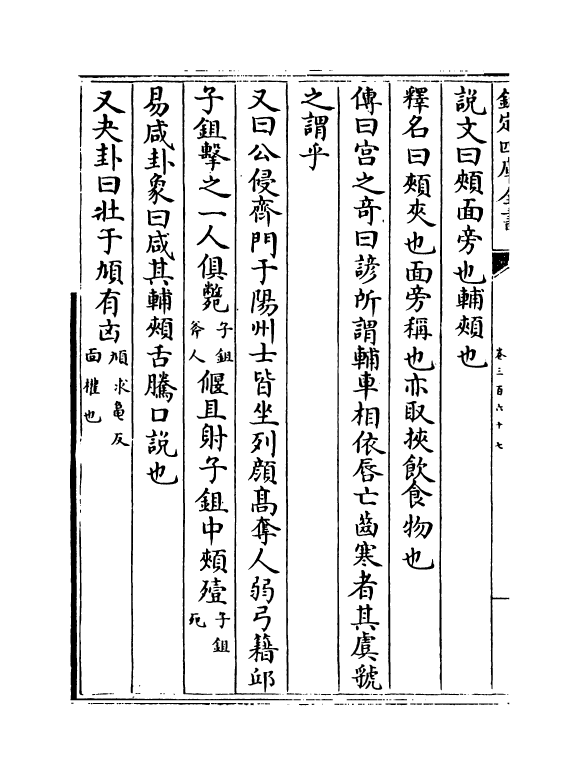 欽定四庫全書
卷三百六十七
說文曰頰面旁也輔頰也
釋名曰頰夾也面旁稱也亦取挾飲食物也
傳曰宫之奇曰諺所謂輔車相依唇亡齒寒者其虞虢
之謂乎
又曰公侵齊門于陽州士皆坐列顔高奪人弱弓籍邱
子鉏擊之一人俱斃子鉏齊人偃且射子鉏中頰殪子鉏死
易咸卦象曰咸其輔頰舌騰口說也
又夬卦曰壯于頄有凶頄求龜反面權也